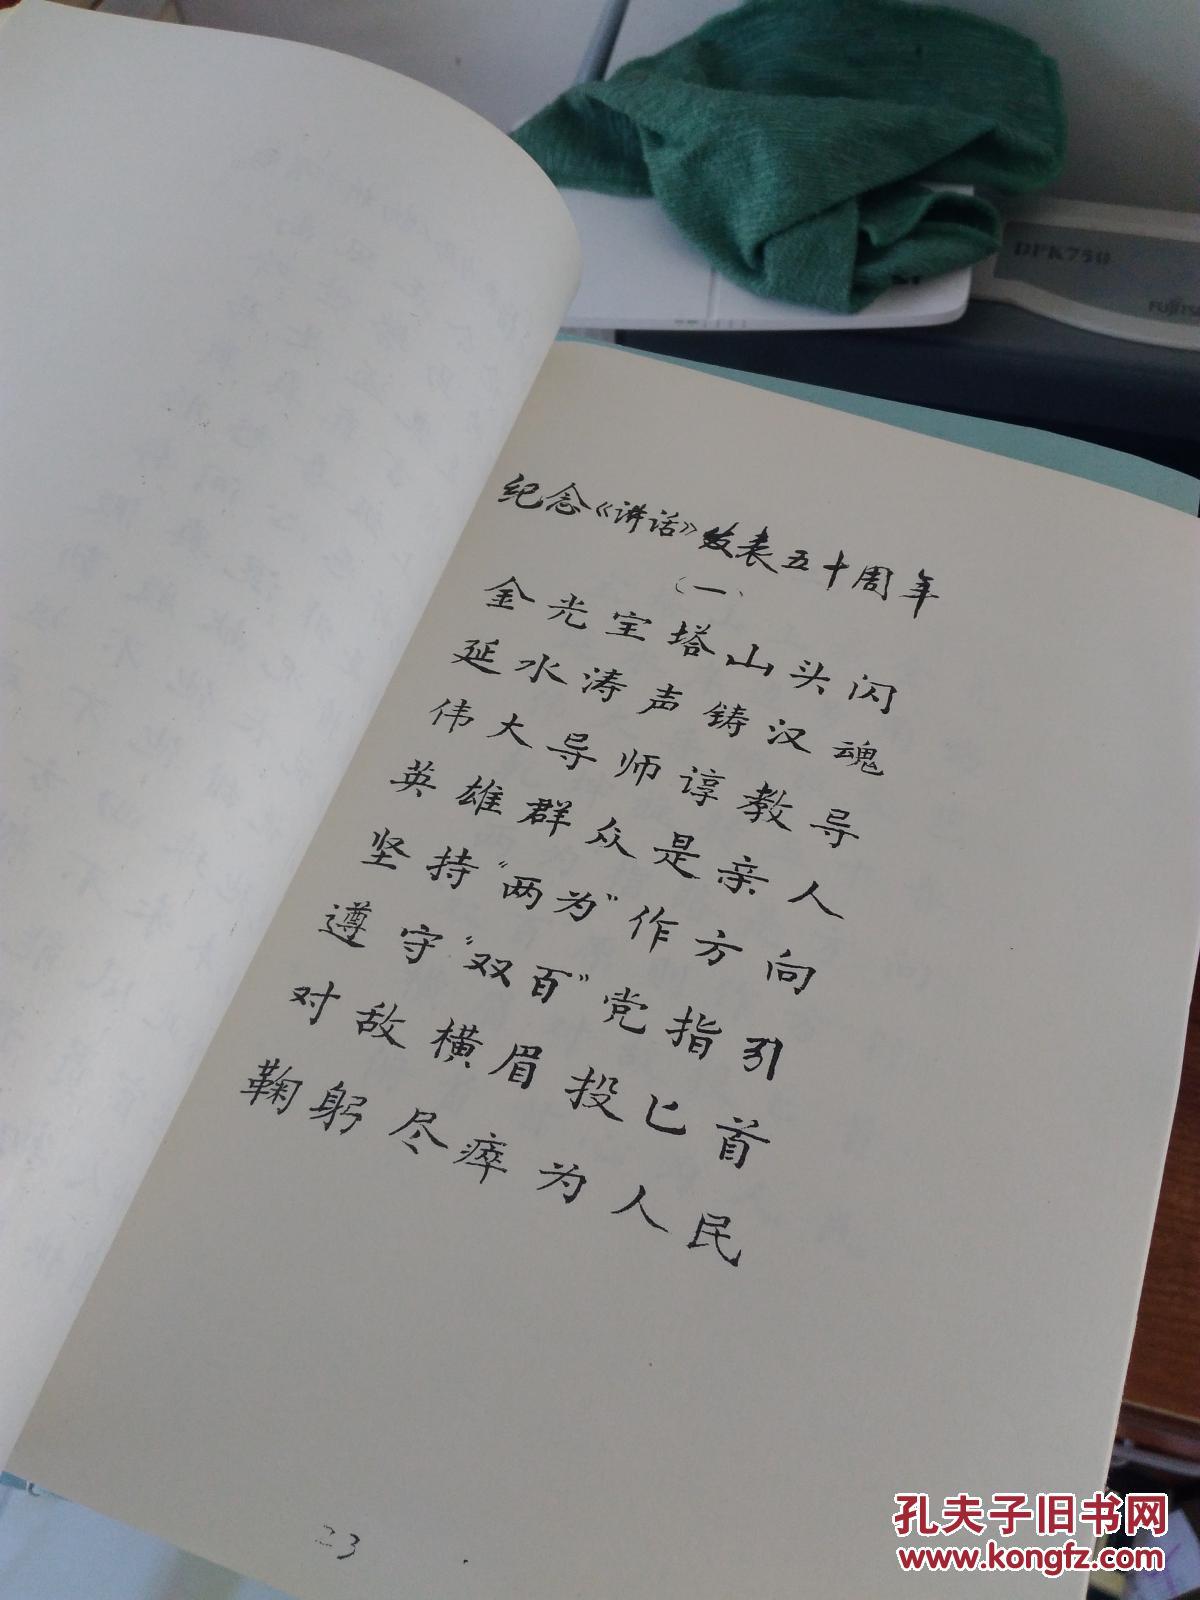 DPK750
FUJITSU
纪念《讲话》发表五十周年
(一)
金光宝塔山头闪
延水涛声铸汉魂
伟大导师谆教导
英雄群众是亲人
坚持“两为”作方向
遵守“双百”党指引
对敌横眉投匕首
鞠躬尽瘁为人民
23
孔夫子旧书网
www.kongfz.com